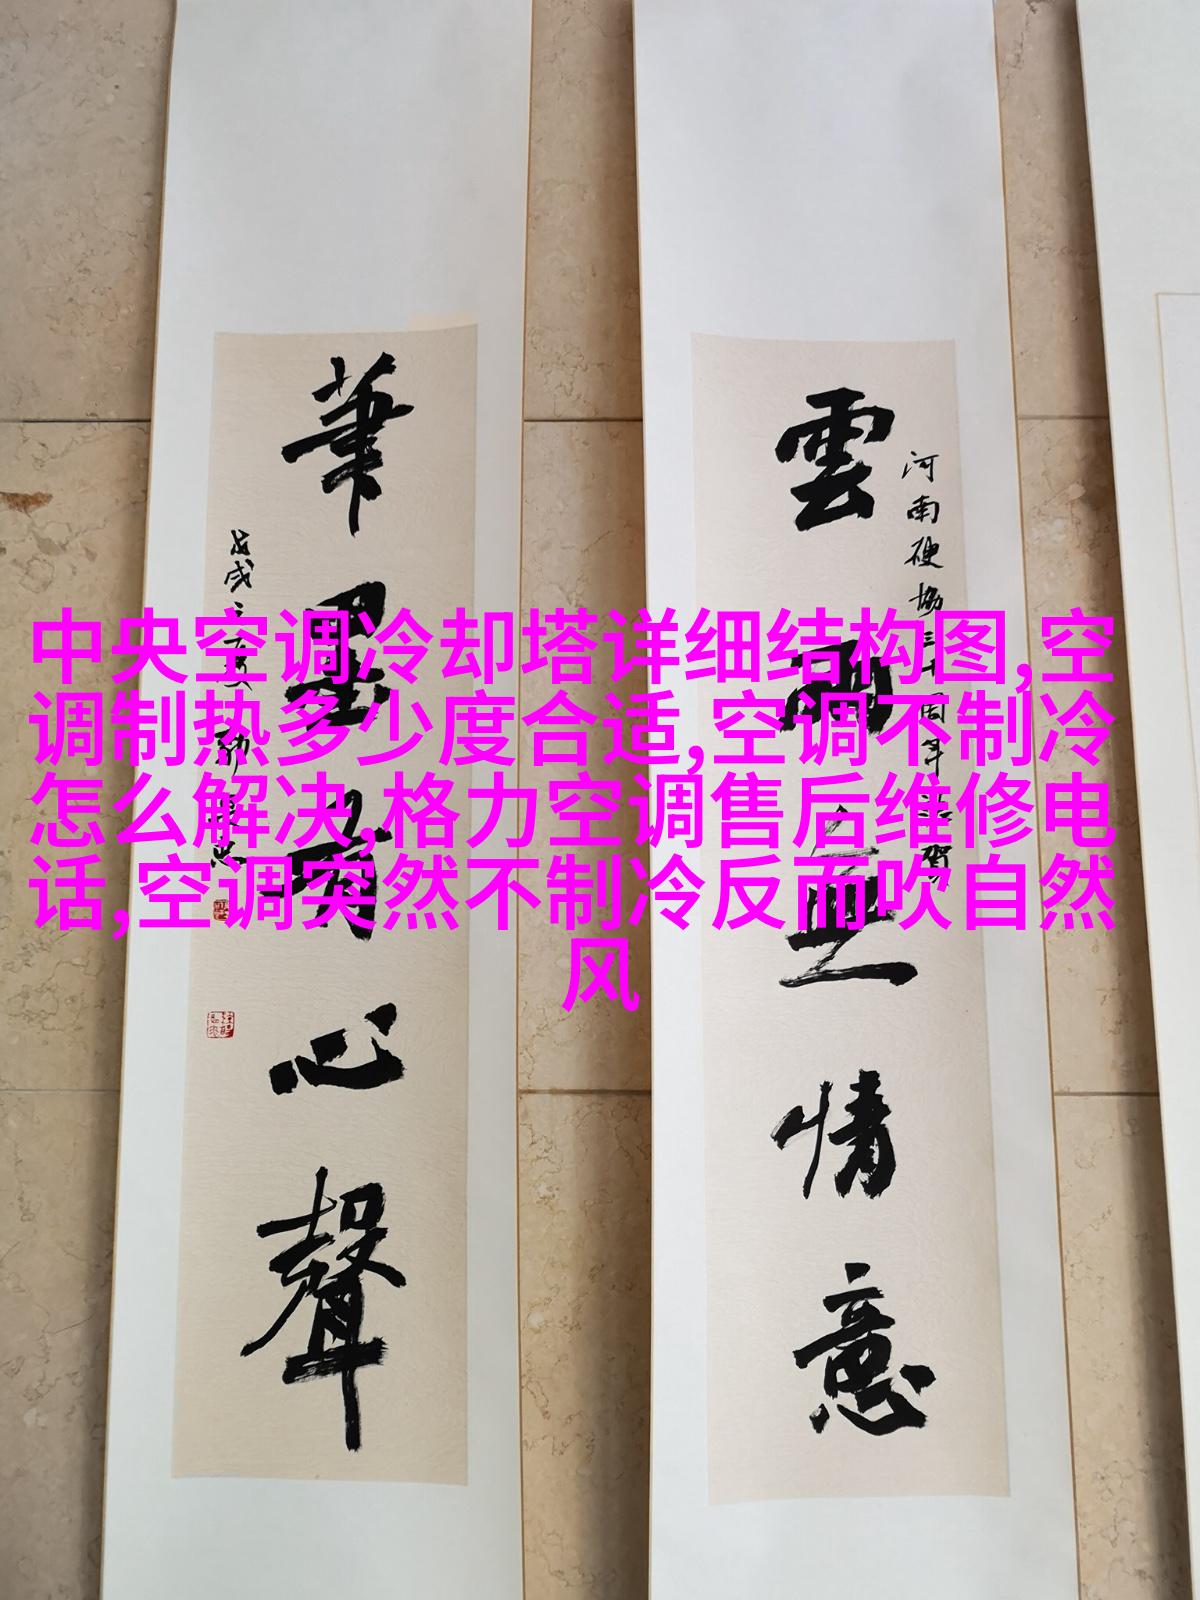 中央空调冷却塔详细结构图,空
调制热多少度合适,空调不制冷
怎么解决,格力空调售后维修电
话,空调突然不制冷反而吹自然
风
雲雨無情意
河南硬協三十周年
筆墨有心聲
戊戌